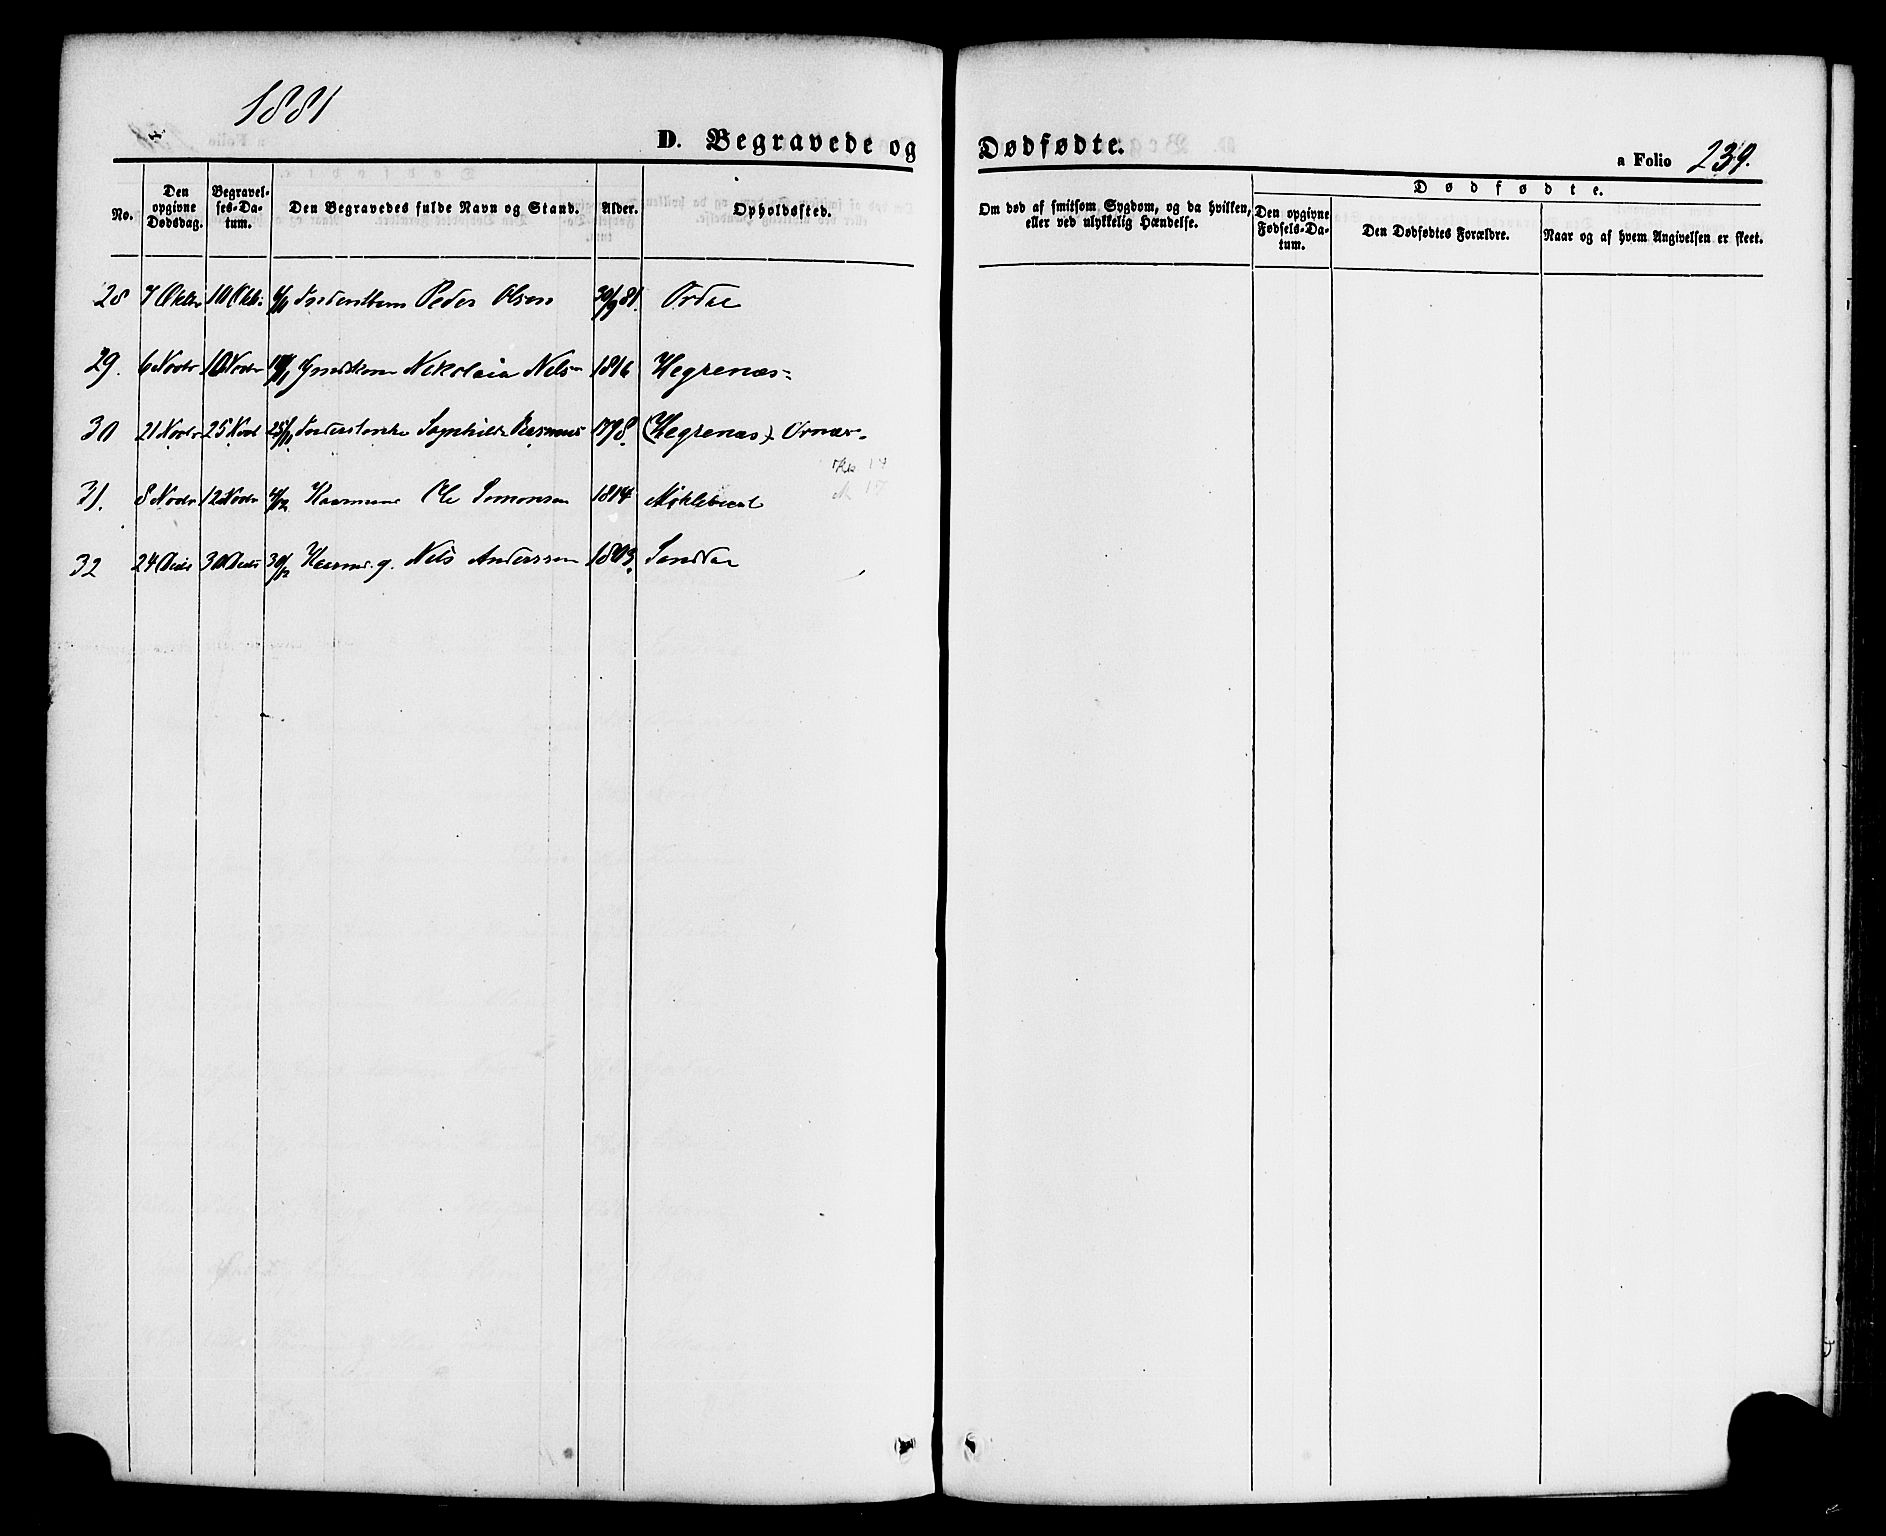 1881
D. Begravede og Dødfødte.
a Folio 239.
No.
Den opgivne Dødsdag.
Begravelses-Datum.
Den Begravedes fulde Navn og Stand.
Alder.
Opholdssted.
Om død af smitsom Sygdom, og da hvilken, eller ved ulykkelig Hændelse.
Dødfødte.
Den opgivne Fødsels-Datum.
Den Dødfødtes Forældre.
Naar og af hvem Angivelsen er skeet.
28 7 Oktbr 10 Oktb: Peder Olsen 30/9 81.
29. 6 Novbr 10 Novbr Nikolaia Niels 1816 Hegrenæs
30 21 Novbr 25 Novb 25/11 Rasmus 1798. (Hegrenæs)
31. 8 Novbr 12 Novbr 4/12 Kaarmand Ole Simonsen 1814 Møklebust
32 24 Decbr 30 Decbr 30/12 Kaarmd. g. Nils Anderssen 1803. Sandae